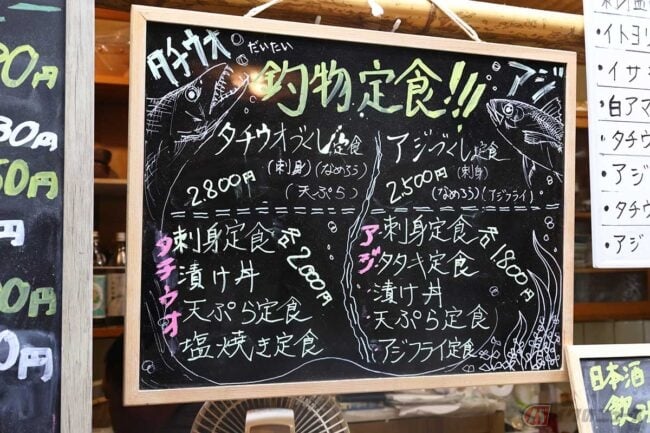 00円
30円
50円
円
0円
0円
タチウオ
だいたい
釣物定食!!!
アジ
タチウオづくし定食
(刺身)(なめろう)
(天ぷら)
2.800円
アジづくし定食
(刺身)
(なめろう)(アジフライ)
2.500円
タチウオ
刺身定食
漬け丼
天ぷら定食
塩焼き定食
各2.000円
アジ
刺身定食
タタキ定食
漬け丼
天ぷら定食
アジフライ定食
各1.800円
・イトヨリ
・イサキ
・白アマ
・タチウ
・アジ
・タチウ
・アジ
日本酒
飲み